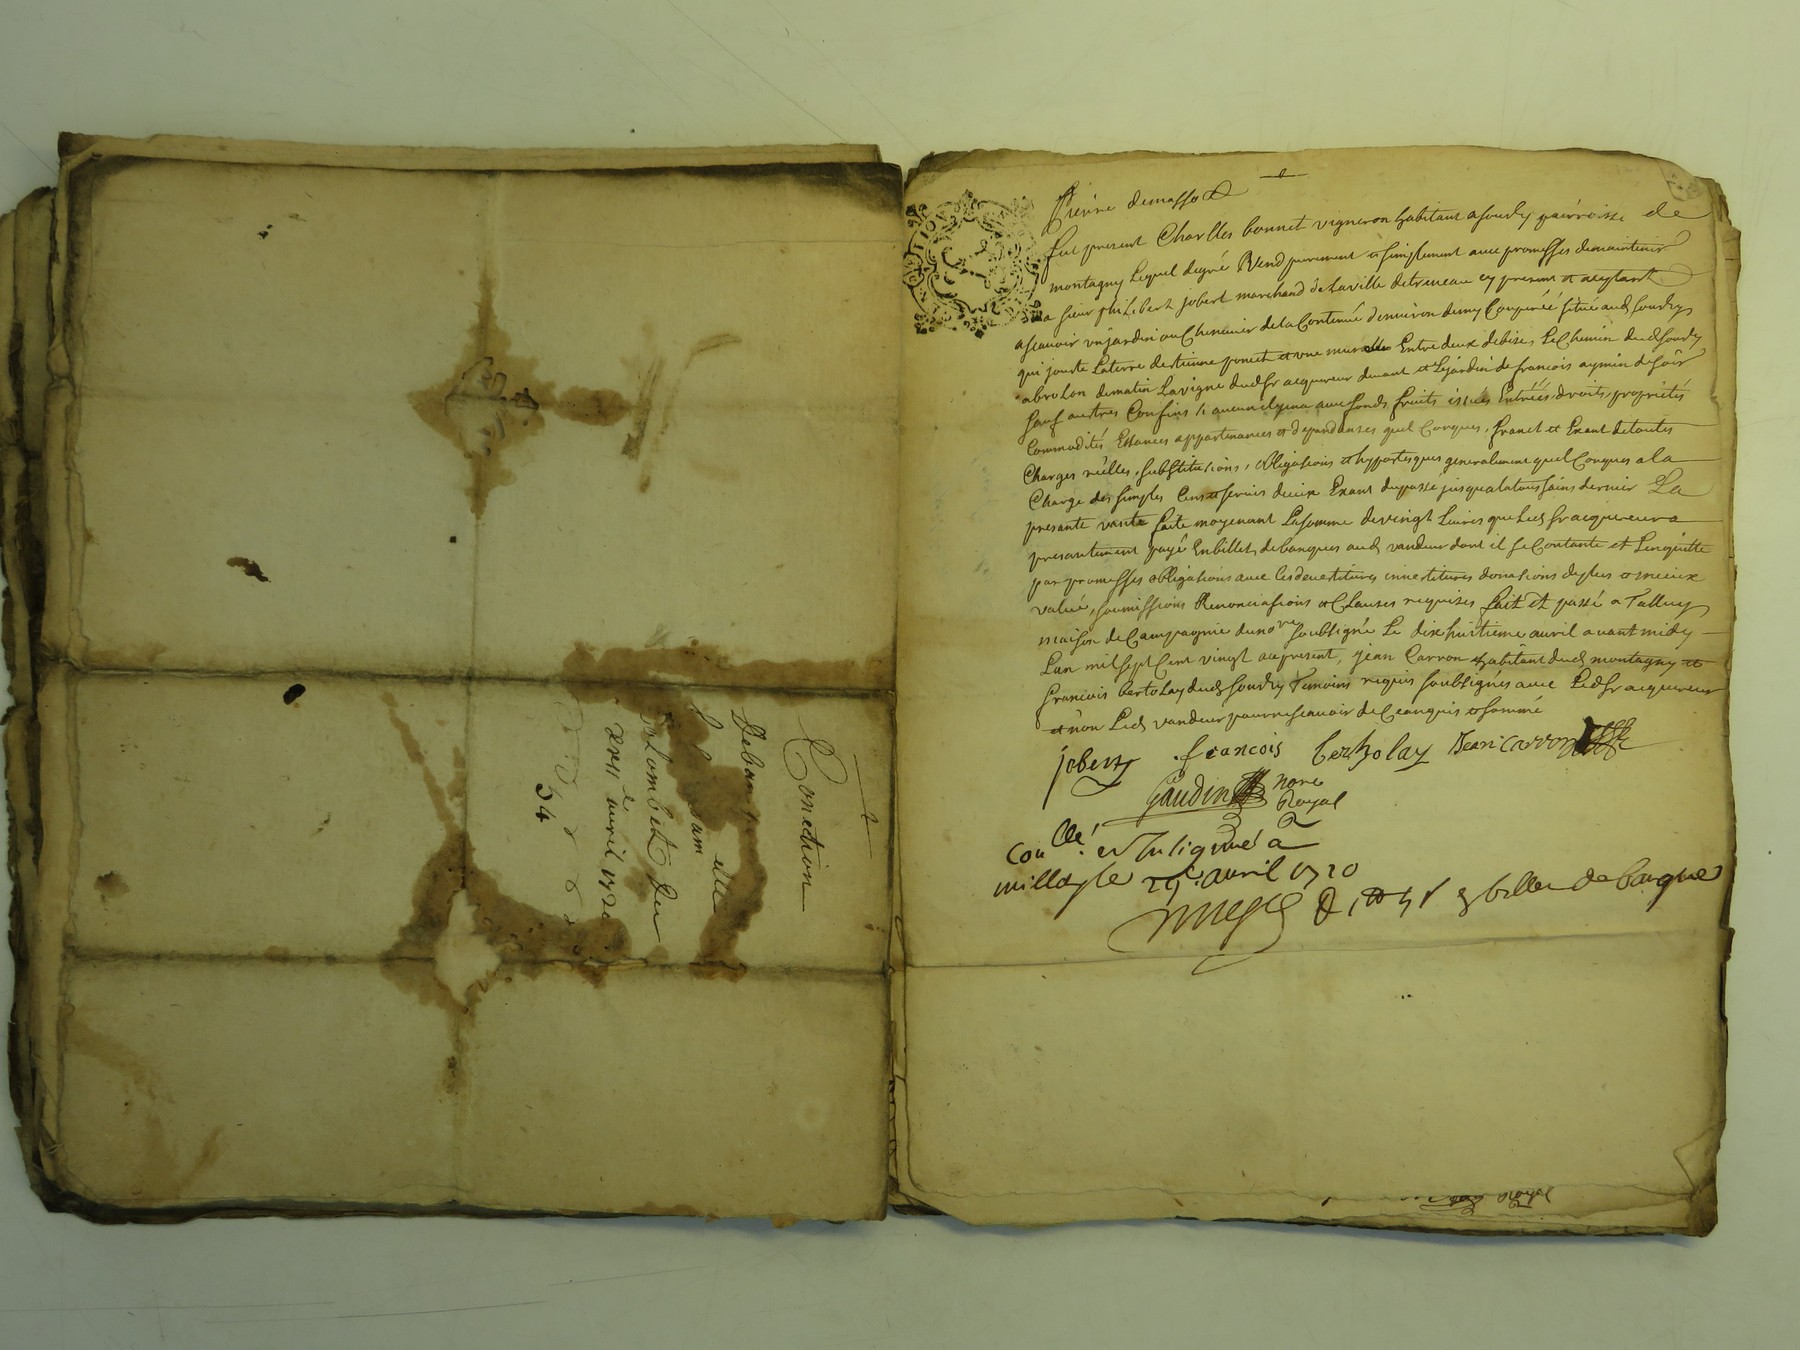 Conection
Debar
uelle
Colombet du
XXII e avril 1720
54
Pierre demasso
fut present Charlles bonnet vigneron habitant a sourdy parroisse de
montagny Lequel degré Vend purement et simplement avec promesses demaintenir
a sieur philibert jobert marchand de Laville detreneau cy present et aceptant
ascavoir un jardin ou Chenevier dela Contenue d'environ demy Couperéé situé aud sourdy
qui jouste Laterre destienne poncet et une muralle Entre deux debise, Le Chemin dudt sourdy
abrolon dematin Lavigne dudt sr acquereur devant et Lejardin de francois aymin de soir
sauf autres Confins si aucun ilyena avec fonds fruits issues Entréés droits, proprietés
Commodités Essances appartenances et depandanses quel Conques, franct et Exant detoutes
Charges réélles, substitusions, obligasions et hyppotesques generalement quel Conques a la
Charge des simples Cens et servis diceux Exant dupassé jusqualatoussains dernier La
presante vante faite moyenant Lasomme devingt Livres que Led sr acquereur a
presantement payé En billets debanques aud vandeur dont il se Contante et Lenquitte
par promesses obligasions avec les devestitures investitures donasions duplus et mieux
valué, soumissions Renonciasions et Clauses requises fait et passé a Talluy
maison de Campagnie du nore soubsigné Le dixhuitieme avril avant midy
Lan mil sept Cent vingt au present, jean Carron habitant dud montagny et
francois bertolay dud sourdy Temoins requis soubsignés avec Ledt sr acquereur
et non Led vandeur pour ne scavoir de Ceanquis et sommé
jobert francois bertholay Jean carron
Gaudin nore
Royal
Coullé et Insigniué à
millayle 29e avril 1720
billet de banque
Royal